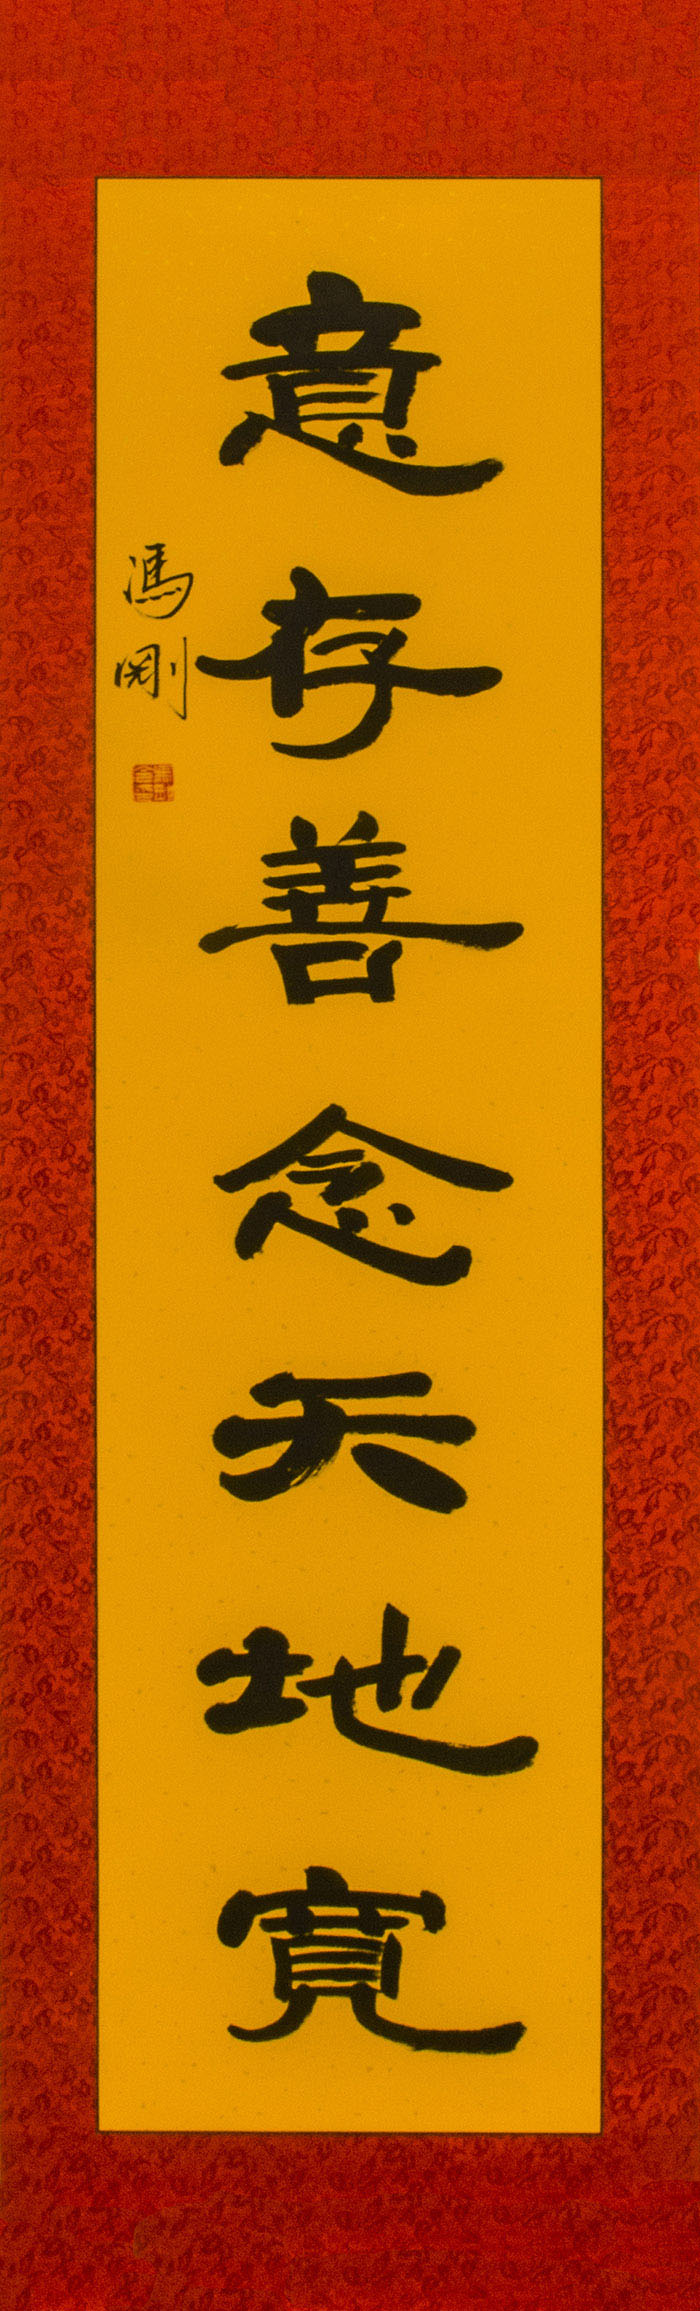 意存善念天地寛
馮剛